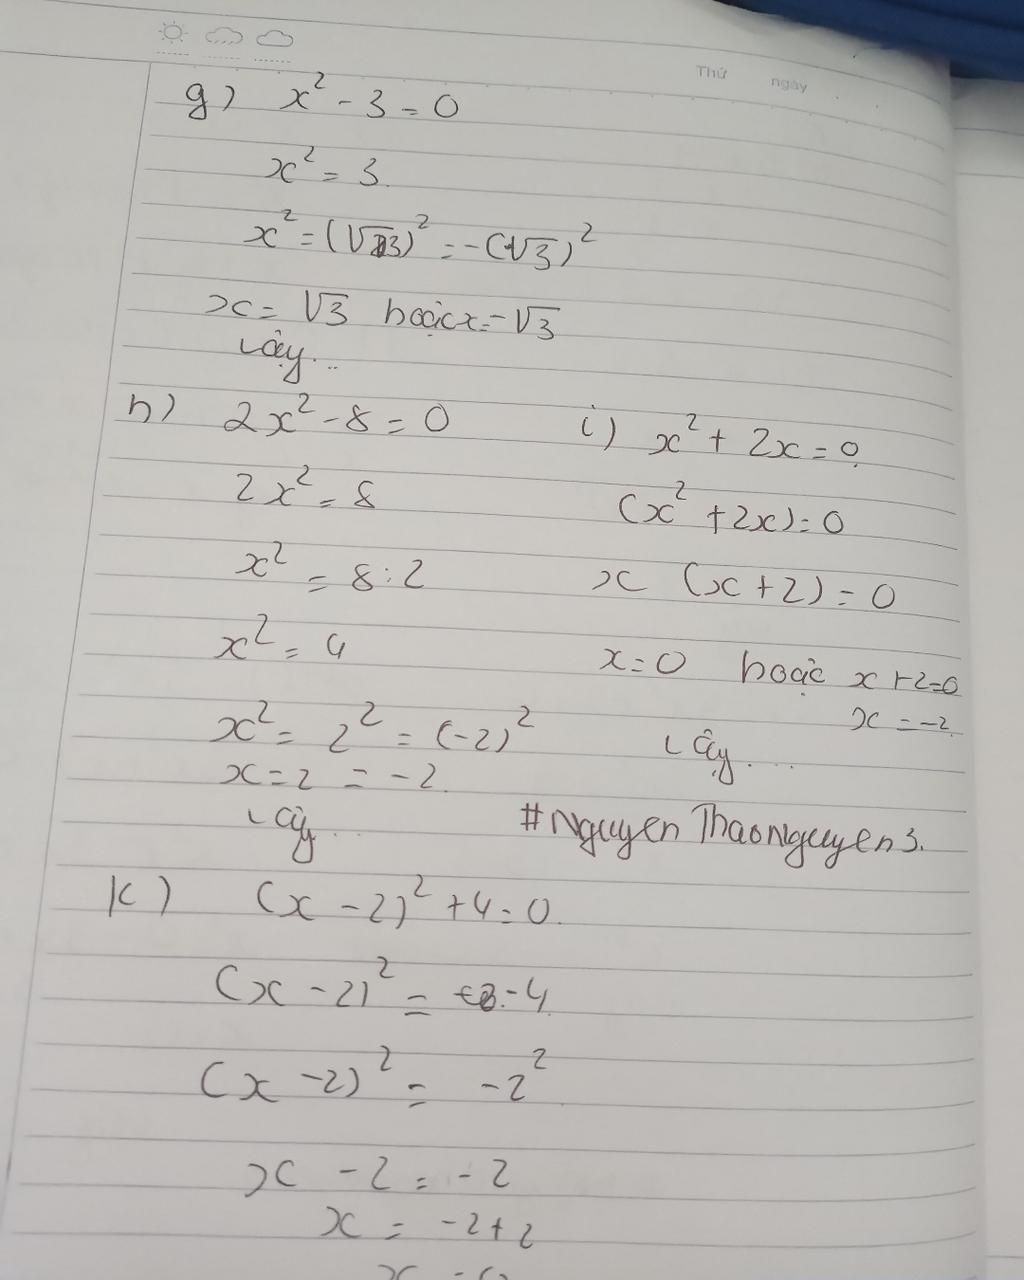 Thứ ngày
g) x² - 3 = 0
x² = 3
x² = (√3)² = -(√3)²
x = √3 hoặc x = -√3
Vậy...
h) 2x² - 8 = 0
2x² = 8
x² = 8 : 2
x² = 4
x² = 2² = (-2)²
x = 2 = -2
Vậy...
i) x² + 2x = 0
(x² + 2x) = 0
x (x + 2) = 0
x = 0 hoặc x + 2 = 0
x = -2
Vậy...
#Nguyen ThaoNguyen3.
k) (x - 2)² + 4 = 0
(x - 2)² = -4
(x - 2)² = -2²
x - 2 = -2
x = -2 + 2